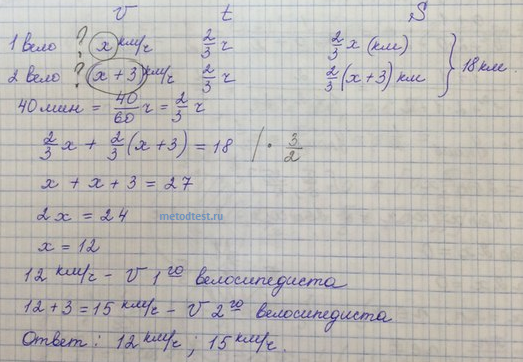 V t S
1 вело ? x км/ч 2/3 ч 2/3 x (км)
2 вело ? x + 3 км/ч 2/3 ч 2/3 (x + 3) км } 18 км.
40 мин = 40/60 ч = 2/3 ч
2/3 x + 2/3 (x + 3) = 18 / · 3/2
x + x + 3 = 27
2x = 24 metodtest.ru
x = 12
12 км/ч – V 1го велосипедиста
12 + 3 = 15 км/ч – V 2го велосипедиста
Ответ: 12 км/ч; 15 км/ч.